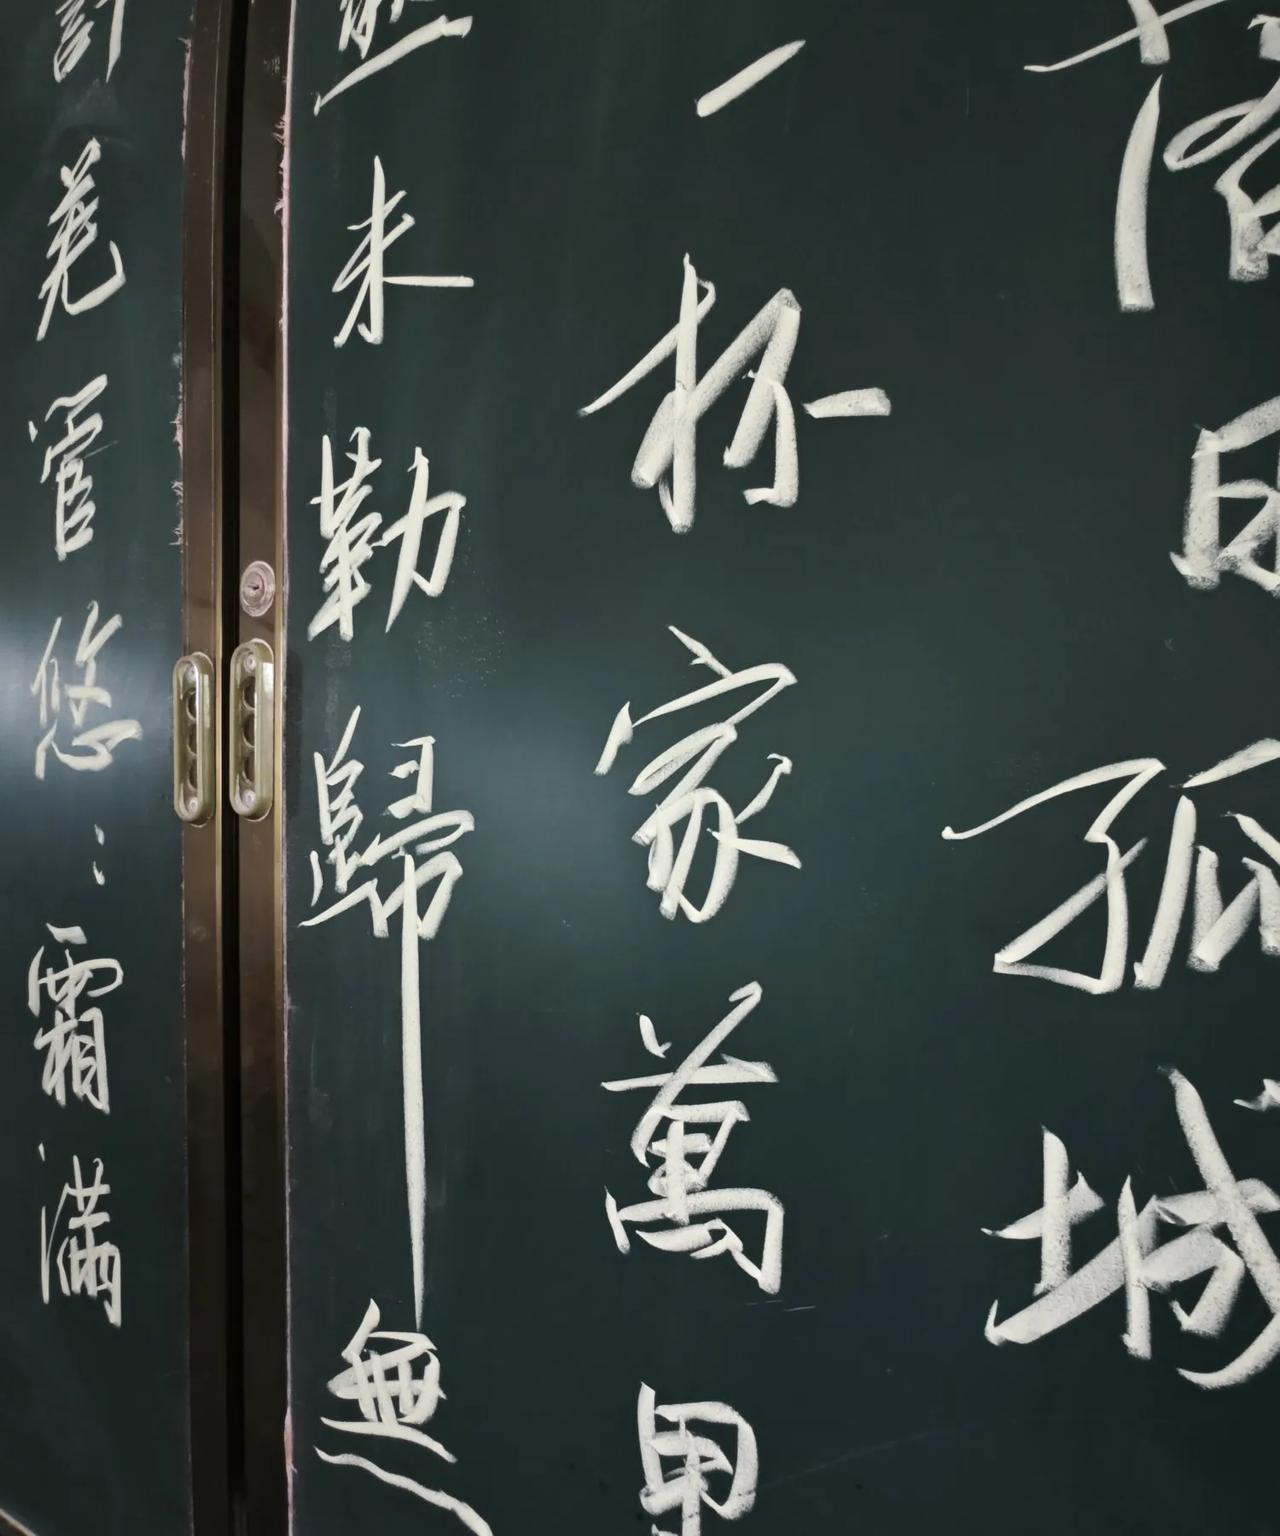 落日孤城
一杯家萬里
然未勒歸無
計羌管悠:霜滿